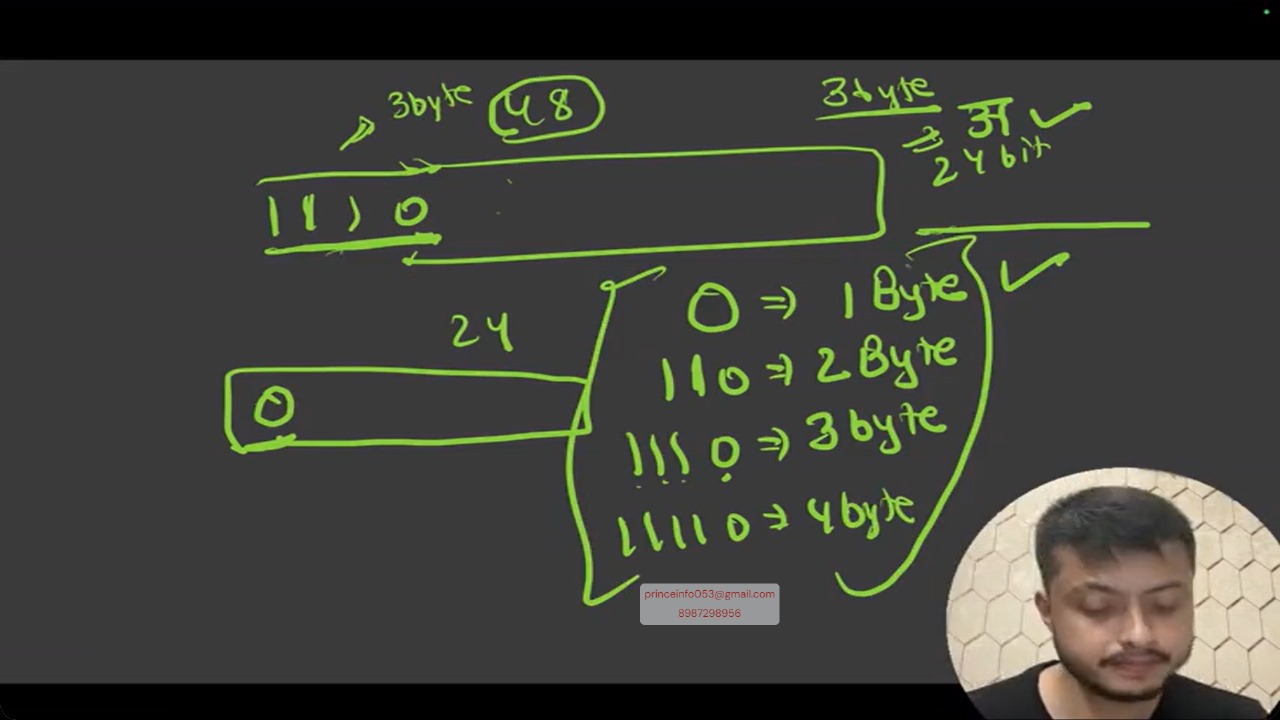 3byte 48
3byte
⇒ अ ✓
24 bit
1110
0 ⇒ 1 Byte ✓
24
110 ⇒ 2 Byte
0
1110 ⇒ 3 byte
11110 ⇒ 4 byte
princeinfo053@gmail.com
8987298956